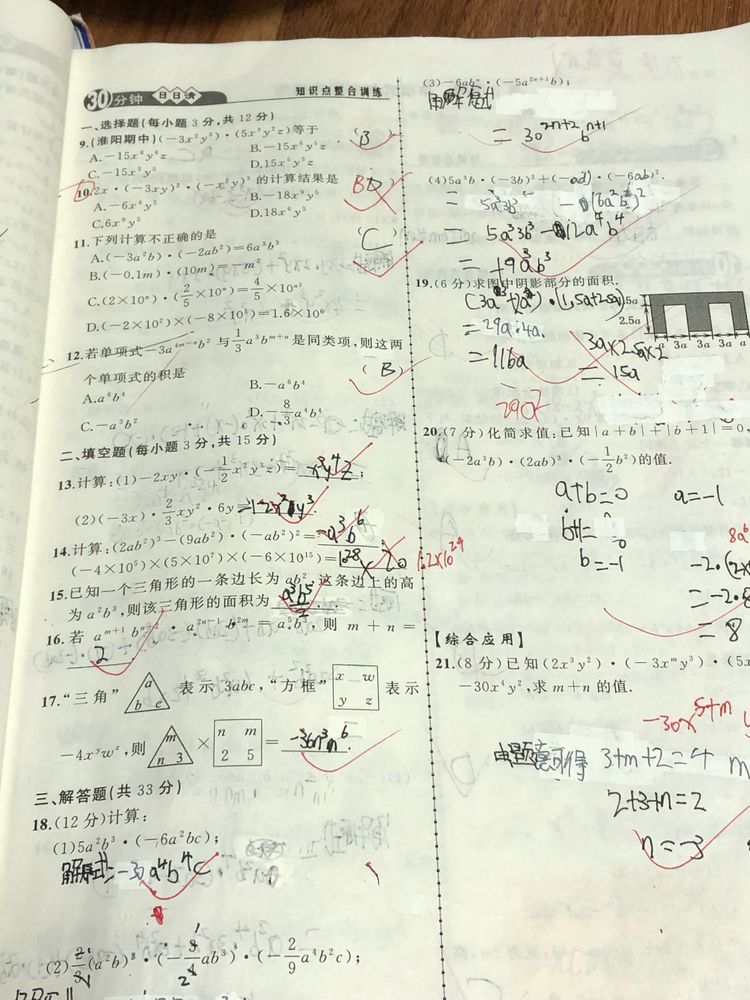 30分钟 日日清 知识点整合训练
一、选择题(每小题3分,共12分)
9.(淮阳期中)(-3x²y³)·(5x³y²z)等于 (B)
A.-15x⁶y⁶z B.-15x⁵y⁵z
C.-15x⁵y⁵ D.15x⁵y⁵z
10.2x·(-3xy)²·(-x²y)³的计算结果是 BD
A.-6x⁴y⁵ B.-18x⁹y⁵
C.6x⁹y⁵ D.18x⁸y⁵
11.下列计算不正确的是 (C
A.(-3a²b)·(-2ab²)=6a³b³
B.(-0.1m)·(10m)=-m²
C.(2×10ⁿ)·(2/5×10ⁿ)=4/5×10ⁿ²
D.(-2×10²)×(-8×10³)=1.6×10⁶
12.若单项式-3a⁴ᵐ⁻ⁿb²与1/3a³bᵐ⁺ⁿ是同类项,则这两
个单项式的积是 (B)
A.a⁶b⁴ B.-a⁶b⁴
C.-a³b² D.-8/3a⁴b⁴
二、填空题(每小题3分,共15分)
13.计算:(1)-2xy·(-1/2x²y³z)=x³y⁴z;
(2)(-3x)·2/3xy²·6y=-12x²y³.
14.计算:(2ab²)³-(9ab²)·(-ab²)²=-a³b⁶
(-4×10⁵)×(5×10⁷)×(-6×10¹⁵)= 1.2×10²⁹
15.已知一个三角形的一条边长为ab²,这条边上的高
为a²b³,则该三角形的面积为a³b⁵/2.
16.若aᵐ⁺¹bⁿ⁺²·a²ⁿ⁻¹b²ᵐ=a⁵b³,则m+n=
2.
17."三角" a b c 表示3abc,"方框" x w y z 表示
-4xʸwᶻ,则 m n 3 × n m 2 5 = -36n³m⁶
三、解答题(共33分)
18.(12分)计算:
(1)5a²b³·(-6a²bc);
解:原式=-30a⁴b⁴c
(2) (a²b)²·( ab³)·(-2/9a⁴b²c);
(3)-6abⁿ·(-5a²ⁿ⁺¹b);
解:原式
=30²ⁿ⁺²bⁿ⁺¹
(4)5a³b·(-3b)²+(-ab)·(-6ab)².
= 5a³3b³ -
= 5a³3b³-
= +9a³b³
19.(6分)求图中阴影部分的面积.
·(1.5a+2.5a)
1.5a
2.5a
a 3a 3a 3a
=29a·4a
=116a
3a×2.5a×2
=15a
29a²
20.(7分)化简求值:已知|a+b|+|b+1|=0,
(-2a³b)·(2ab)³·(-1/2b²)的值.
a+b=0 a=-1
b+1=0
b=-1
8a⁶
-2·(2×
=-2·8
=8
【综合应用】
21.(8分)已知(2x³y²)·(-3xᵐy³)·(5x
-30x⁴y²,求m+n的值.
-30x⁵⁺ᵐ y
由题意可得 3+m+2=4 m
2+3+n=2
n=-3